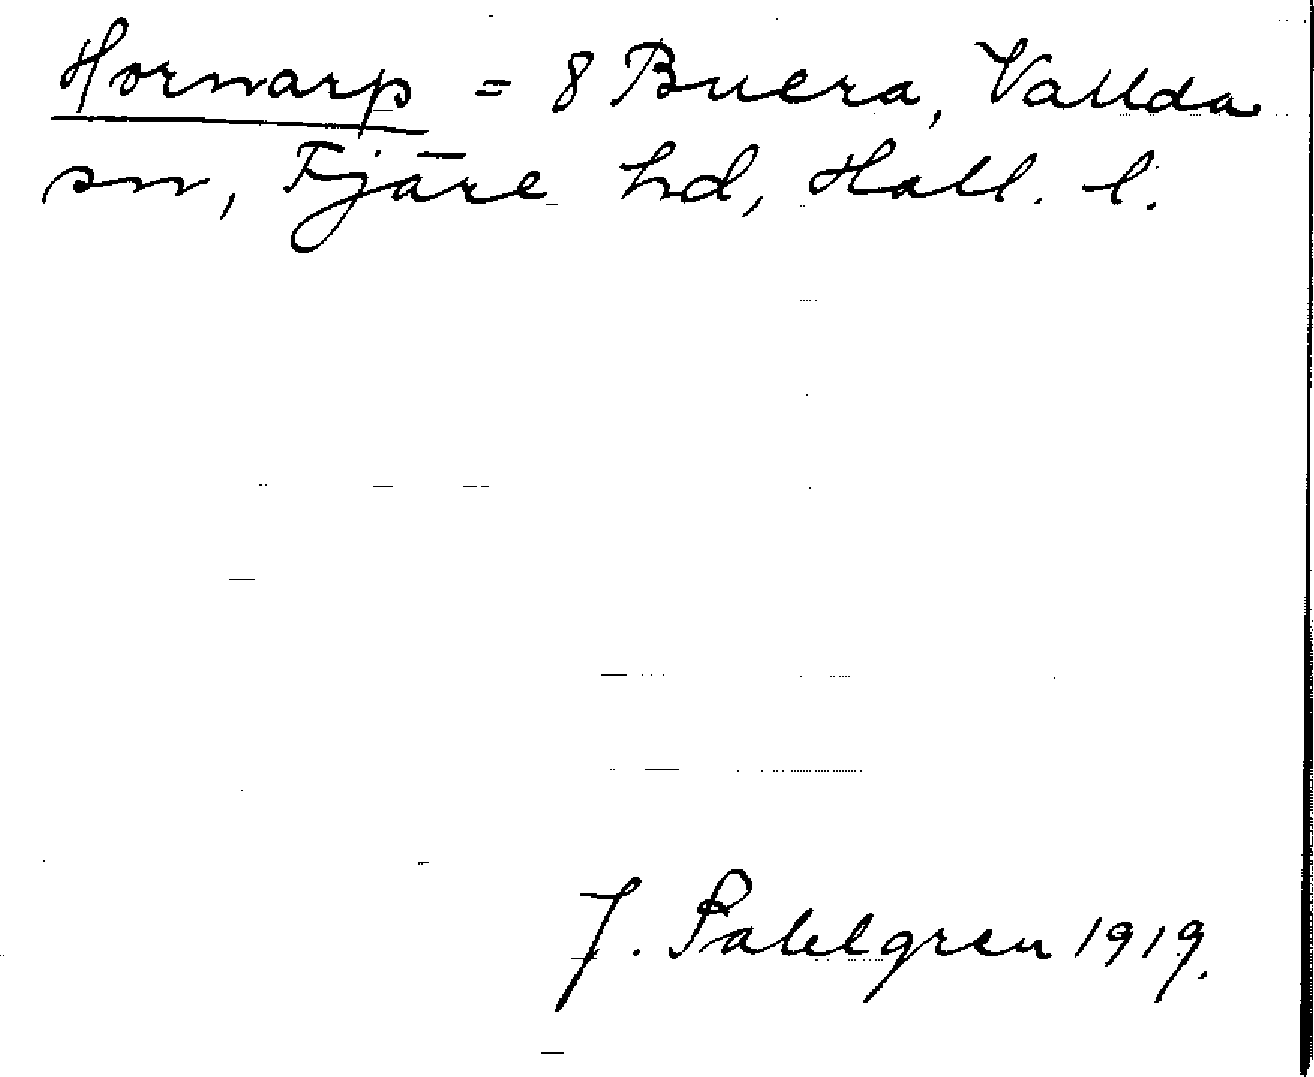 Hornarp = 8 Buera, Vallda
sn, Fjäre hd, Hall. l.
J. Sahlgren 1919.